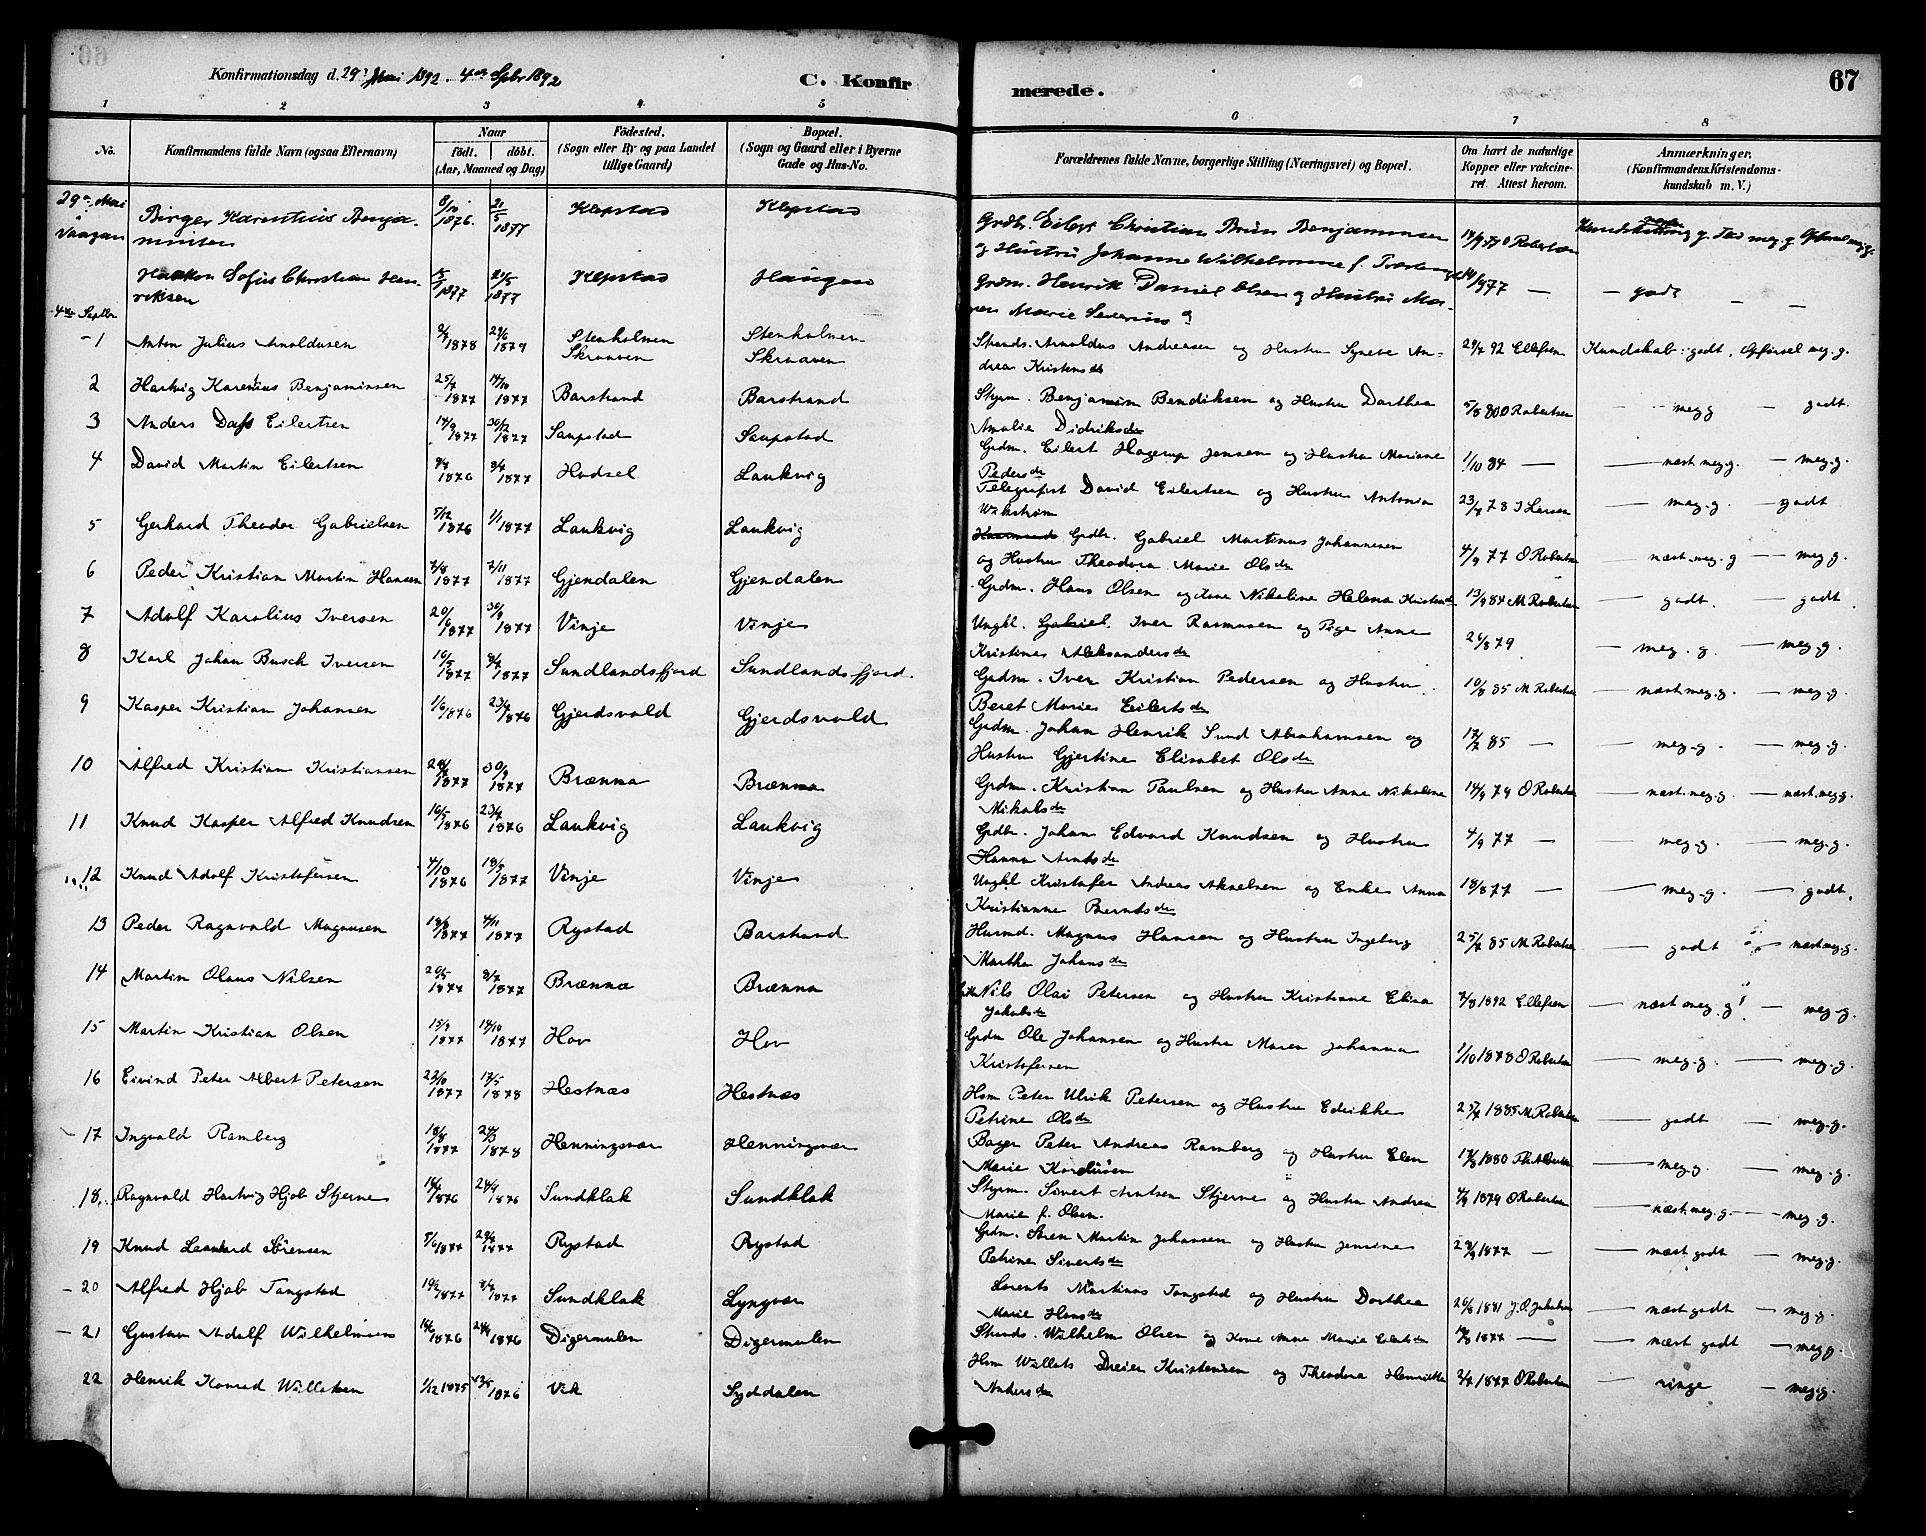 67
Konfirmationsdag d. 29 Mai 1892. 4de Sptbr 1892
C. Konfirmerede.
1 2 3 4 5 6 7 8
No. Konfirmandens fulde Navn (ogsaa Efternavn) Naar født. døbt. (Aar, Maaned og Dag) Fødested. (Sogn eller By og paa Landet tillige Gaard) Bopæl. (Sogn og Gaard eller i Byerne Gade og Hus-No. Forældrenes fulde Navne, borgerlige Stilling (Næringsvei) og Bopæl. Om havt de naturlige Kopper eller vakcineret. Attest herom. Anmærkninger. (Konfirmandens Kristendomskundskab m. V.)
29de Mai i Vaagan
Birger Karentius Benjaminsen 8/10 1876. 21/5 1877 Klepstad Klepstad Grdbr. Eilert Christian Bruun Benjaminsen og Hustru Johanne Wilhelmine f.
Haakon Sofus Christian Henriksen 1877 21/5 1877 Klepstad Haugen Grdm. Henrik Daniel Olsen og Hustru Maren Marie 14/9 77 — — godt — —
4de Septbr
1 Anton Julius Arnoldusen 1878 29/6 1879 Stenholmen Skraaven Stenholmen Skraaven Strands. Arnoldus Andreasen og Hustru Syneve Andrea Kristensdr 29/7 92 Ellefsen Kundskab: godt, Opførsel meg. g.
2 Hartvig Karenius Benjaminsen 25/7 1877 14/10 1877 Barstrand Barstrand Styrm. Benjamin Bendiksen og Hustru Dorthea Amalie Didriksdr 5/8 80 O Robertsen — meg g — godt.
3 Anders Dass Eilertsen 14/9 1877 30/12 1877 Saupstad Saupstad Grdm. Eilert Hagerup Jensen og Hustru Mariane Pedersdr 1/10 84 — — næst meg. g. — meg. g.
4 David Martin Eilertsen 1876 3/4 1877 Hadsel Laukvig Telegrafist David Eilertsen og Hustru Antonia Wikstrøm 23/4 78 J Larsen — meg. g. — godt
5 Gerhard Theodor Gabrielsen 5/12 1876 1/1 1877 Laukvig Laukvig Grdbr. Gabriel Martinus Johannesen og Hustru Theodora Marie Olsdr 4/9 77 O Robertsen — næst. meg. g — meg. g.
6 Peder Kristian Martin Hansen 2/8 1877 2/11 1877 Gjendalen Gjendalen Grdm. Hans Olsen og Kone Nikoline Helena Kristensdr 13/9 84 M Robertsen — godt. — godt
7 Adolf Karolius Iversen 20/6 1877 30/9 1877 Vinje Vinje Ungkl. Gabriel. Iver Rasmusen og Pige Anne Kristines Aleksandersdr 26/8 79 — meg. g. — meg. g.
8 Karl Johan Busch Iversen 16/5 1877 8/7 1877 Sundlandsfjord Sundlandsfjord. Grdm. Iver Kristian Pedersen og Hustru Beret Marie Eilertsdr 10/8 85 M Robertsen — næst. meg. g. — meg. g.
9 Kasper Kristian Johansen 1/6 1876 23/7 1876 Gjerdsvold Gjerdsvold Grdm. Johan Henrik Sund Abrahamsen og Hustru Gjertine Elisabet Olsdr 17/7 85 — — meg. g. — meg. g.
10 Alfred Kristian Kristiansen 1877 30/9 1877 Brænna Brænna Grdm. Kristian Paulsen og Hustru Anne Nikoline Nikolsdr 14/9 79 O Robertsen — næst. meg. g. — næst. meg. g.
11 Knud Kasper Alfred Knudsen 16/5 1876 23/7 1876 Laukvig Laukvig Grdbr. Johan Edvard Knudsen og Hustru Hanna Arntsdr 4/9 77 — — meg. g. — meg. g.
12 Knud Adolf Kristofersen 4/10 1876 18/3 1877 Vinje Vinje Ungkl Kristofer Andreas Akselsen og Enke Anna Kristianne Berntsdr 18/8 77 — — meg. g. — godt.
13 Peder Ragnvald Magnusen 18/8 1877 4/11 1877 Rystad Barstrand Husmd. Magnus Hansen og Hustru Ingeborg Martha Johansdr 25/7 85 M Robertsen — godt — næst. meg. g.
14 Martin Olaus Nilsen 20/5 1877 8/7 1877 Brænna Brænna Nils Olai Petersen og Hustru Kristiane Elisa Jakobsdr 4/8 1892 Ellefsen — næst meg. g — meg. g.
15 Martin Kristian Olsen 15/9 1877 14/10 1877 Hov Hov Grdm Ole Johansen og Hustru Maren Johanna Kristofersen 1/10 1878 O Robertsen — meg. g — meg. g.
16 Eivind Peter Albert Petersen 23/10 1877 12/5 1878 Hestnæs Hestnæs Hsm Peter Ulrik Petersen og Hustru Edrikke Petrine Olsdr 25/7 1885 M Robertsen — godt — meg. g.
17 Ingvald Ramberg 18/8 1877 24/3 1878 Henningsvær Henningsvær Bager Peter Andreas Ramberg og Hustru Elen Marie 1880 — meg. g. — meg. g.
18. Ragnvald Hartvig Hjob Stjerne 1876 24/9 1876 Sundklak Sundklak Styrm. Sivert Arntsen Stjerne og Hustru Andrea Marie f. Olsen. 4/9 1879 O Robertsen — næst. meg. g. — meg. g.
19 Knud Leonhard Sørensen 5/6 1877 1877 Rystad Rystad Grdm. Søren Martin Johansen og Hustru Jensine Petrine Sivertsdr 1877 — — næst godt — meg. g.
20 Alfred Hjob Tangstad 1877 1877 Sundklak Lyngvær Lorents Martinus Tangstad og Hustru Dorthea Marie Hansdr 26/8 1881 — næst godt — meg. g.
21 Gustav Adolf Wilhelmsen 1876 1876 Digermulen Digermulen Strands. Wilhelm Olsen og Kone Anne Marie 1877 — — næst godt — meg g.
22 Henrik Konrad Willatsen 1/12 1875 1876 Vik Syddalen Hsm Willats Dreier Kristensen og Theodora Henriette Andersdr 1877 O Robertsen — ringe — meg. g.